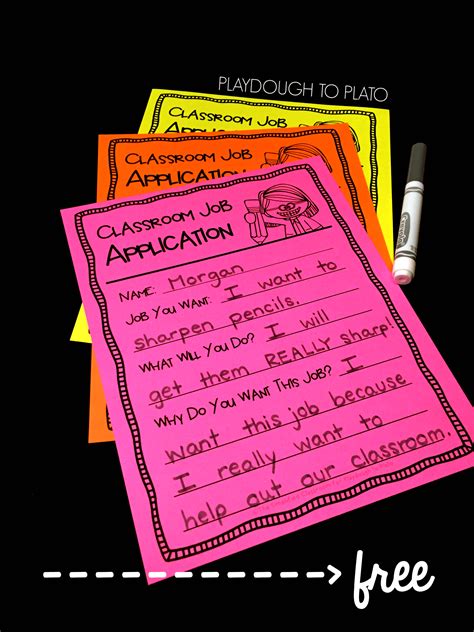 PLAYDOUGH TO PLATO
CLASSROOM JOB
CLASSROOM JOB
APPLICATION
CLASSROOM JOB
APPLICATION
NAME: Morgan
JOB YOU WANT: I want to
sharpen pencils.
WHAT WILL YOU DO? I will
get them REALLY sharp!
WHY DO YOU WANT THIS JOB? I
want this job because
I really want to
help out our classroom.
free